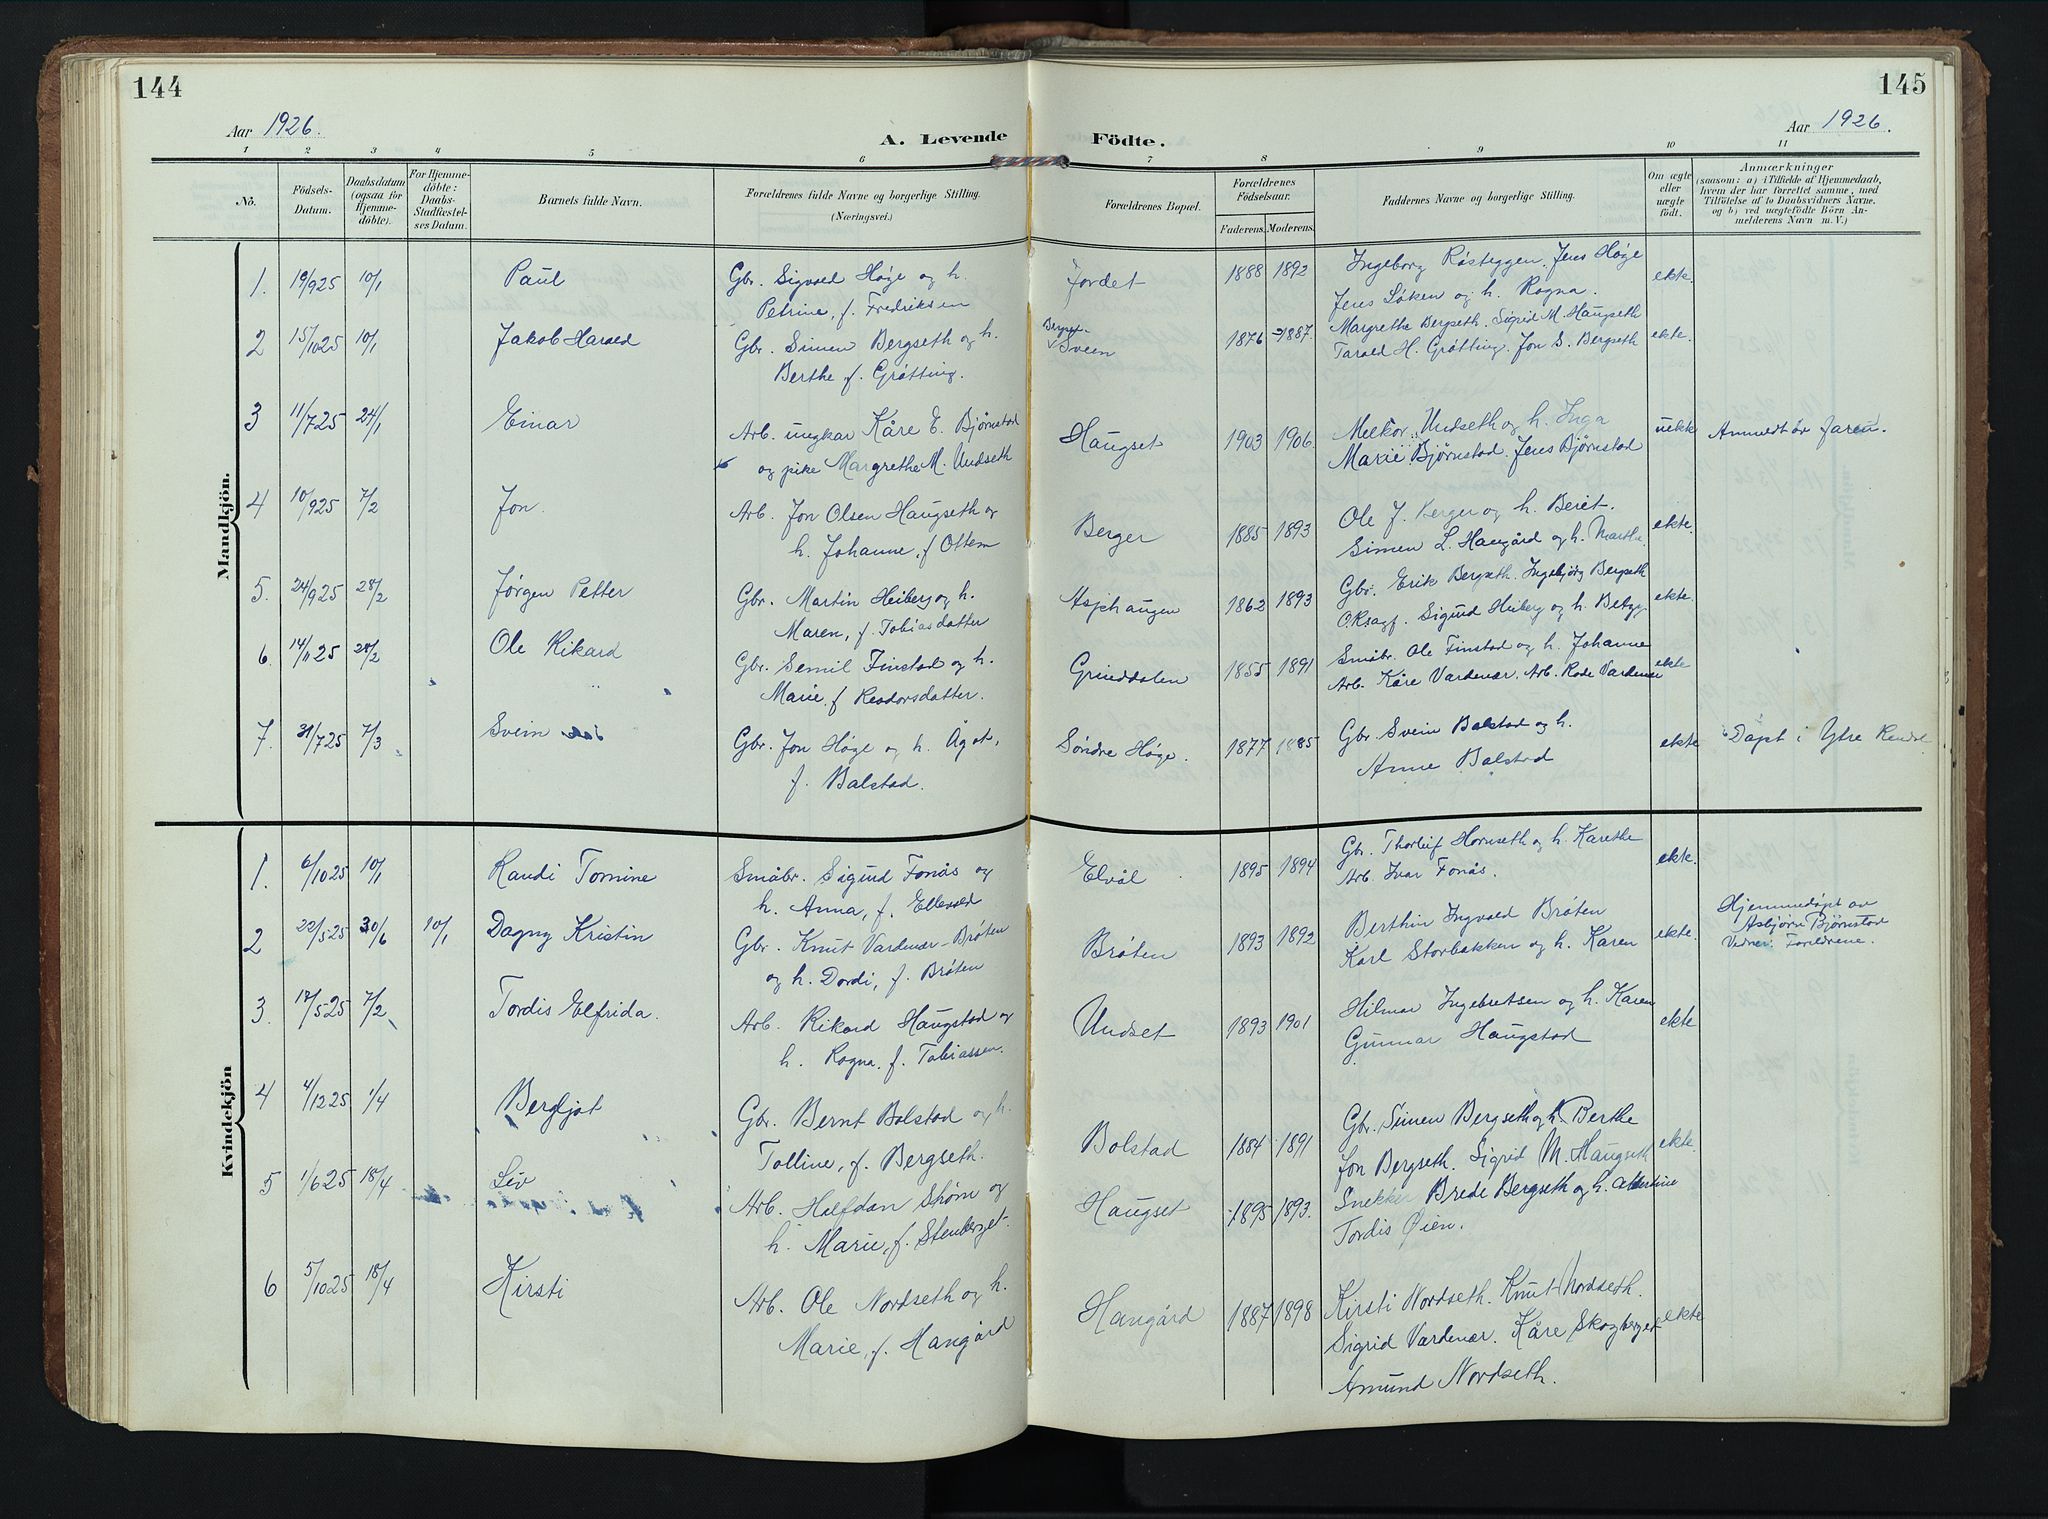 144
145
Aar 1926.
A. Levende Födte.
Aar 1926.
1 2 3 4 5 6 7 8 9 10 11
No.
Födsels-
Datum.
Daabsdatum
(ogsaa for
Hjemme-
døbte).
For Hjemme-
döbte:
Daabs-
Stadfæstel-
ses Datum.
Barnets fulde Navn.
Forældrenes fulde Navne og borgerlige Stilling.
(Næringsvei.)
Forældrenes Bopæl.
Forældrenes
Födselsaar.
Faderens. Moderens.
Faddernes Navne og borgerlige Stilling.
Om ægte
eller
uægte
födt.
Anmærkninger
(saasom: a) i Tilfælde af Hjemmedaab,
hvem der har forrettet samme, med
Tilföielse af to Daabsvidners Navne,
og b) ved uægtefödte Börn An-
melderens Navn m. V.)
Mandkjön.
1. 19/925 10/1 Paul Gbr. Sigvald Høge og h. Fordet 1888 1892 Ingeborg Røsteggen. Jens Høge ekte.
Petrine, f. Fredriksen Jens Løken og h. Ragna.
2 15/1025 10/1 Jakob Harald Gbr. Simen Bergseth og h. Bergset- Sveen 1876 1887. Margrethe Bergseth. Sigrid M. Haugseth ekte.
Berthe, f. Grøtting. Tarald H. Grøtting. Jon S. Bergseth
3 11/725 24/1 Einar Arb. ungkar Kåre E. Bjørnstad Haugset 1903 1906. Melkor Undseth og h. Inga uekte Anmeldt av faren.
og pike Margrethe M. Undseth Marie Bjørnstad. Jens Bjørnstad
4 10/925 7/2 Jon. Arb. Jon Olsen Haugseth og Berger 1885 1893 Ole J. Berger og h. Beret. ekte.
h. Johanne, f Ottem Simen L. Hangård og h. Martha.
5. 24/925 28/2 Jørgen Petter Gbr. Martin Heiberg og h. Asphaugen 1862 1893 Gbr. Erik Bergseth. Ingebjørg Bergseth ekte.
Maren, f. Tobiasdatter O.Rsagf. Sigurd Heiberg og h. Betzy.
6. 14/1125 28/2 Ole Rikard Gbr. Semil Finstad og h. Grinddalen 1855 1891 Småbr. Ole Finstad og h. Johanne ekte
Marie, f Resdorsdatter. Arb. Kåre Vardenær. Arb. Rode Vardenær
7. 31/725 7/3 Svein Gbr. Jon Høge og h. Ågot, Søndre Høge. 1877 1885 Gbr. Svein Balstad og h. ekte Døpt i Ytre Rendal
f. Balstad. Anne Balstad
Kvindekjön
1. 6/1025 10/1 Randi Tomine Småbr. Sigurd Fonås og Elvål 1895 1894 Gbr. Thorleif Hornseth og h. Karethe ekte.
h. Anna, f. Ellevold Arb. Ivar Fonås.
2 22/525 30/6 10/1 Dagny Kristin Gbr. Knut Vardenær-Brøten Brøten 1893 1892 Berthin Ingvald Brøten ekte. Hjemmedøpt av
og h. Dordi, f. Brøten Karl Storbakken og h. Karen Asbjørn Bjørnstad
Vidner: Foreldrene.
3. 17/525 7/2 Tordis Elfrida. Arb. Rikard Haugstad og Undset 1893 1901 Hilmar Ingebretsen og h. Karen ekte
h. Ragna, f. Tobiassen. Gunnar Haugstad
4 4/1225 1/4 Bergljot Gbr. Bernt Bolstad og h. Bolstad 1884 1891 Gbr. Simen Bergseth og h. Berthe ekte.
Tolline, f. Bergseth. Jon Bergseth. Sigrid M. Haugseth
5 1/625 18/4 Liv Arb. Halfdan Strøm og Haugset 1895 1893. Snekker Brede Bergseth og h. Albertine
h. Marie, f. Stenberget. Tordis Øien.
6 5/1025 18/4 Kirsti Arb. Ole Nordseth og h. Hangård 1887 1898 Kirsti Nordseth. Knut Nordseth.
Marie, f. Hangård Sigrid Vardenær. Kåre Skogberget ekte
Amund Nordseth.